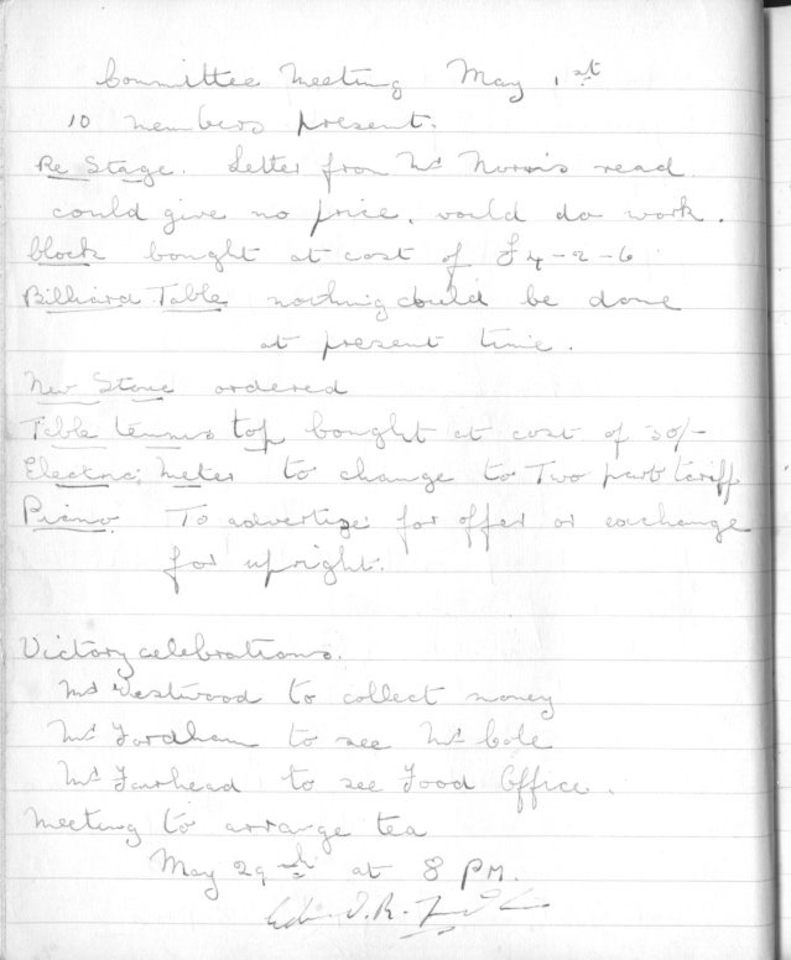 Committee Meeting May 1st
10 members present.
Re Stage. Letter from Mr Norris read
could give no price. would do work.
Clock bought at cost of £4-2-6
Billiard Table nothing could be done
at present time.
New Stove ordered
Table tennis top bought at cost of 30/-
Electric Meter to change to Two part tariff
Piano. To advertize for offer or exchange
for upright.
Victory celebrations.
Westwood to collect money
Mr Fordham to see Mr Cole
Fairhead to see Food Office.
Meeting to arrange tea
May 29th at 8 PM.